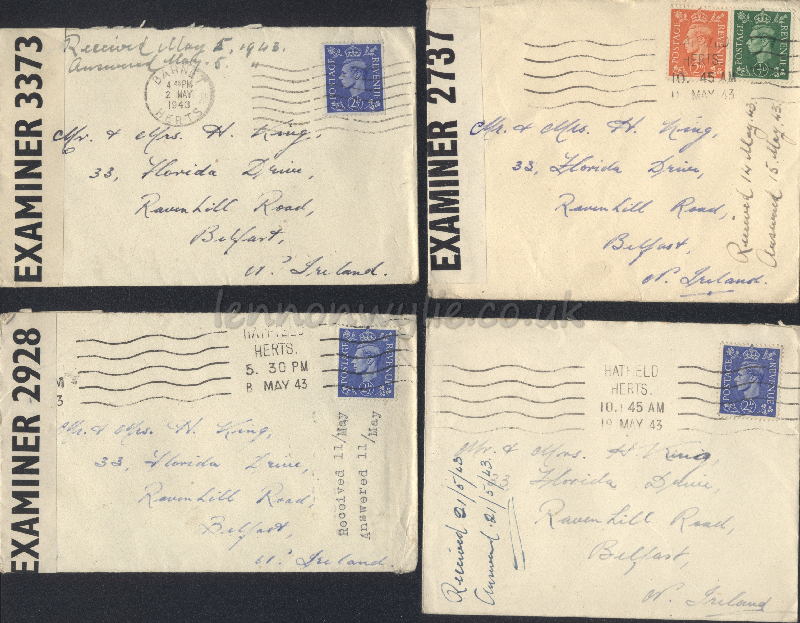 EXAMINER 3373
Received May 5, 1943.
Answered May. 5. "
BARNET
4 45 PM
2 MAY
1943
HERTS
POSTAGE REVENUE
2½D
Mr. & Mrs. H. King,
33, Florida Drive,
Ravenhill Road,
Belfast,
N. Ireland.
EXAMINER 2737
POSTAGE REVENUE
POSTAGE REVENUE
HERTS
10. 45 AM
MAY 43
Mr. & Mrs. H. King,
33, Florida Drive,
Ravenhill Road,
Belfast.
N. Ireland.
Received 14 May 43.
Answered 15. May. 43.
lennonwylie.co.uk
EXAMINER 2928
HATFIELD
HERTS.
5. 30 PM
8 MAY 43
POSTAGE REVENUE
2½D
Mr. & Mrs. H. King,
33, Florida Drive,
Ravenhill Road,
Belfast,
N. Ireland.
Received 11/May
Answered 11/May
HATFIELD
HERTS.
10. 45 AM
19 MAY 43
POSTAGE REVENUE
2½D
Mr. & Mrs. H. King,
33, Florida Drive,
Ravenhill Road,
Belfast,
N. Ireland
Received 21/5/43
Answered. 21/5/43.